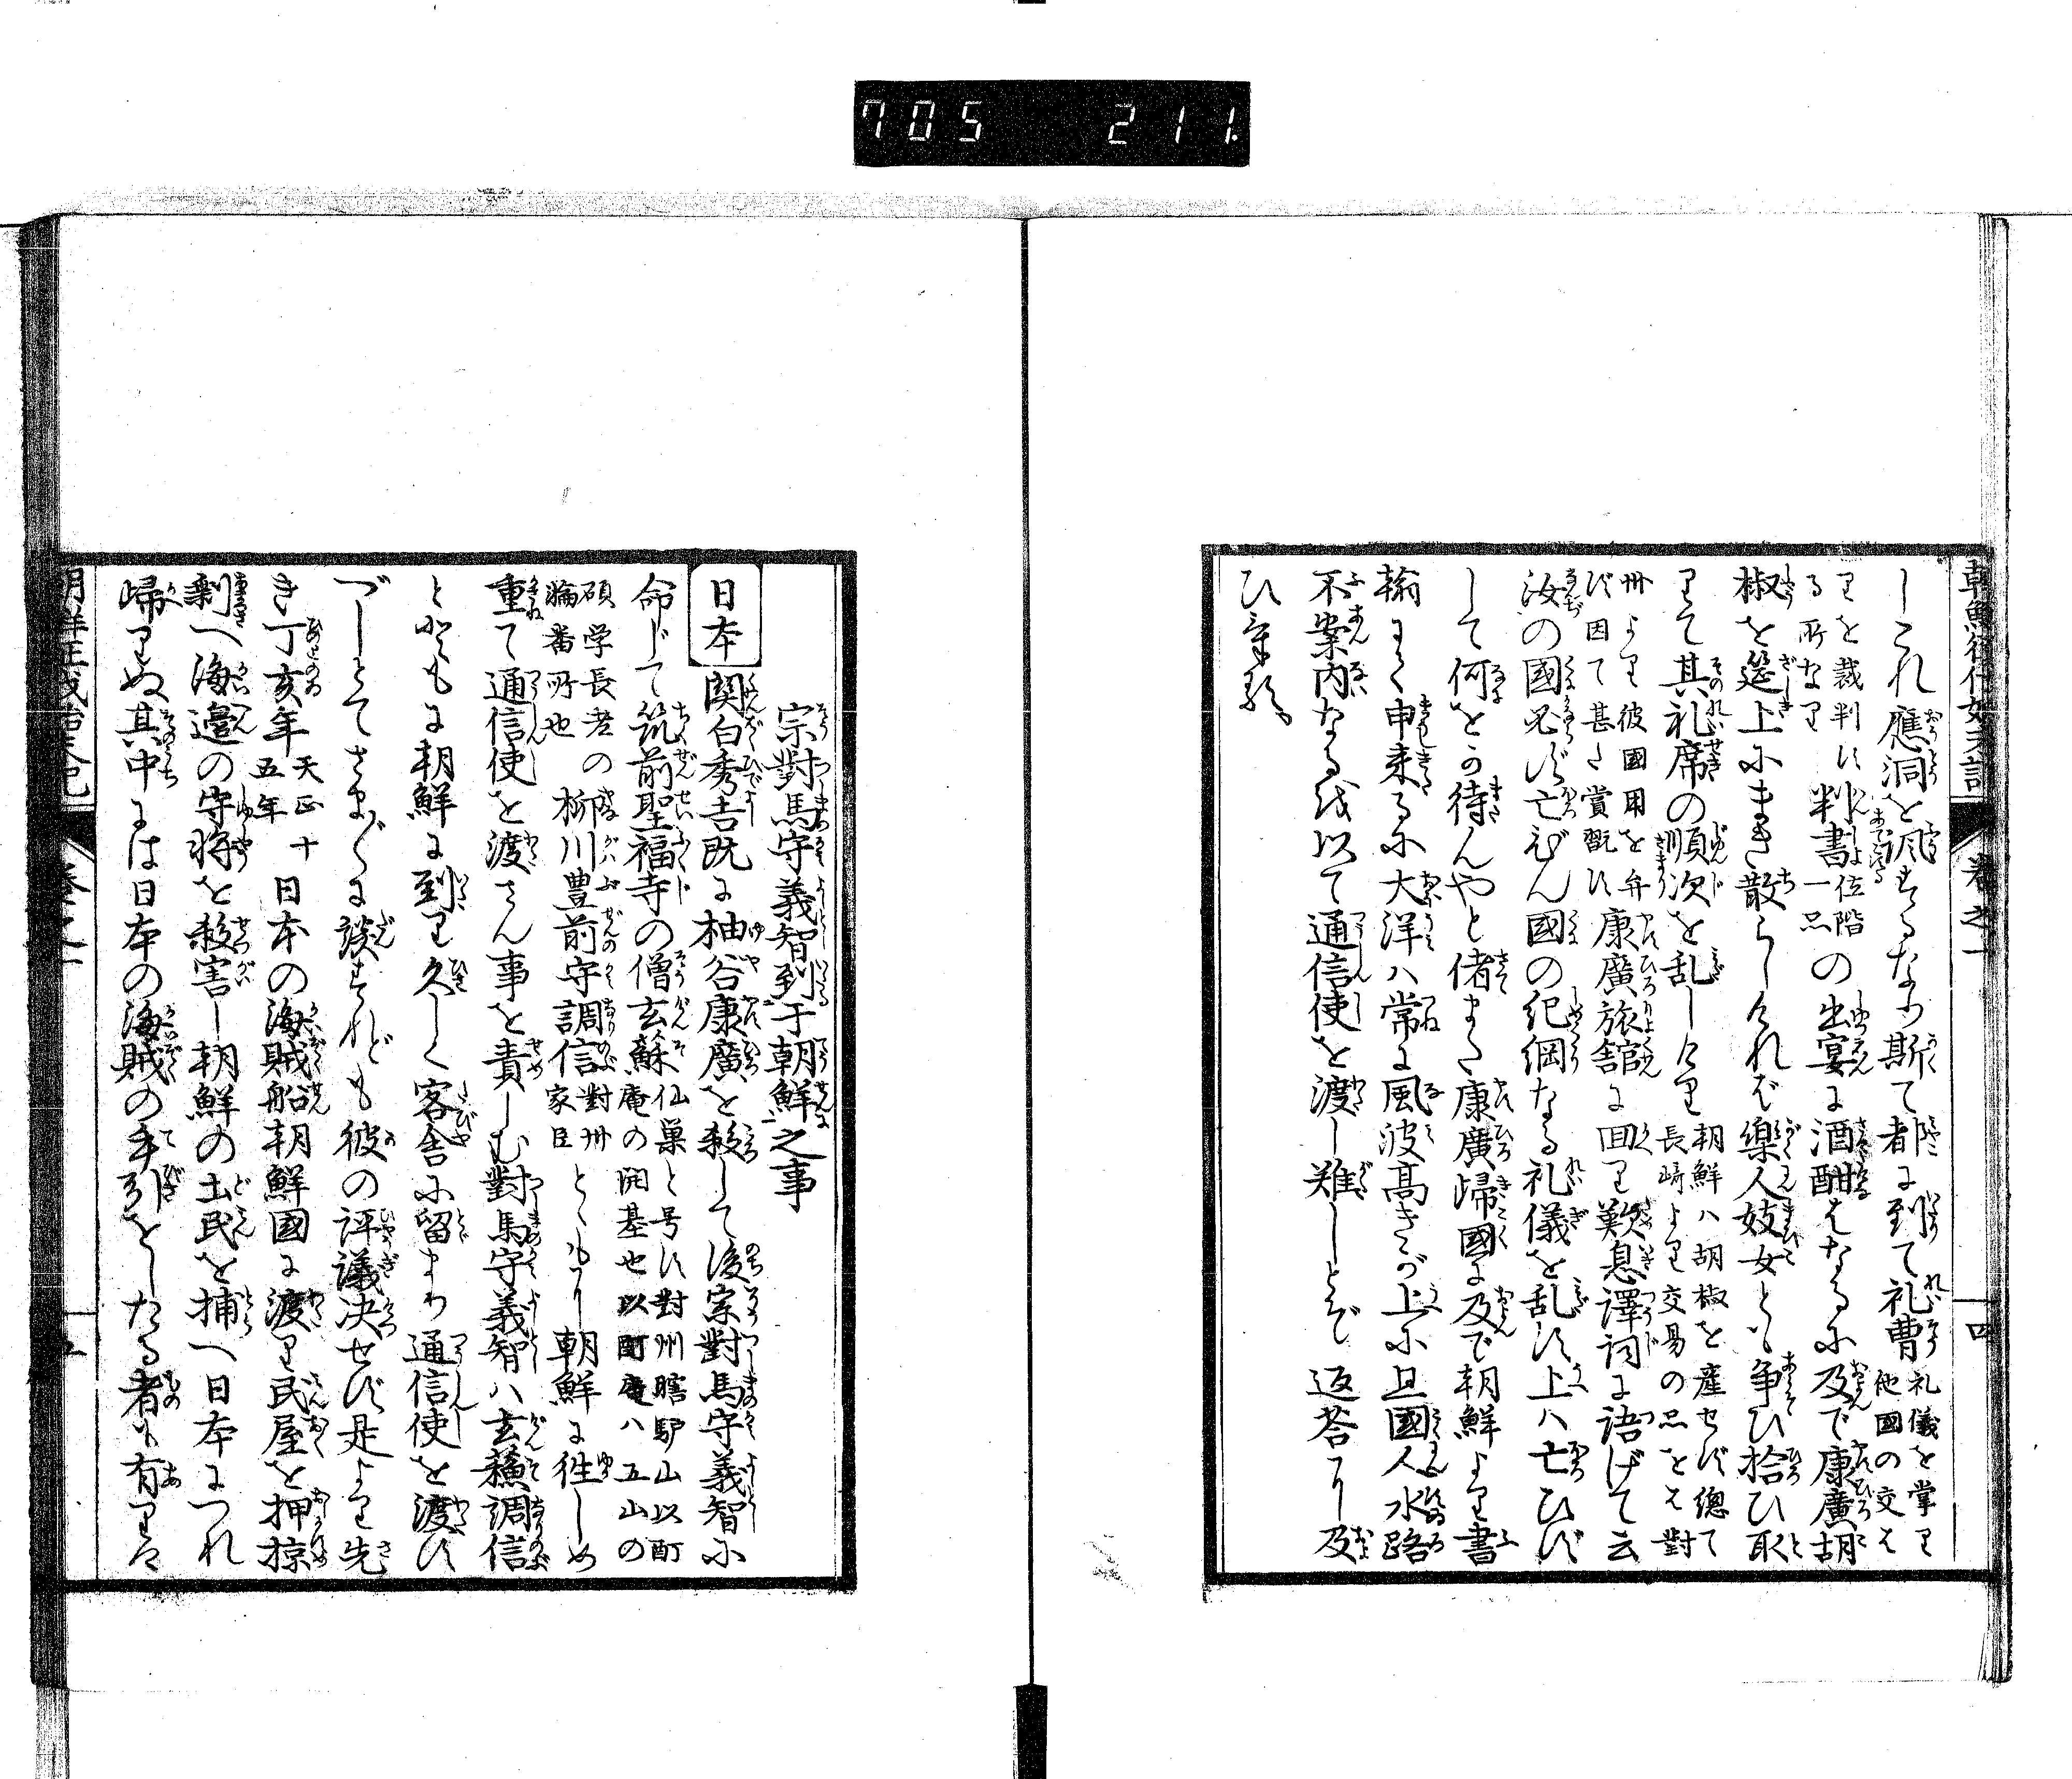 705 211
卷之一
四
しこれ應洞を諷するなり斯て都に到て礼曹礼儀を掌り他國の交は
りを裁判する所なり判書位階一品の出宴に酒酣はなるに及で康廣胡
椒を筵上にまき散らしければ樂人妓女とも争ひ拾ひ取
りて其礼席の順次を乱しけり朝鮮ハ胡椒を産せず總て長崎より交易の品をは對
州より彼國用を弁ず因て甚た賞翫す康廣旅舘に回り歎息譯詞に語げて云
汝の國必ず亡びん國の紀綱なる礼儀を乱す上ハ亡ひず
して何をか待んやと偖また康廣歸國に及で朝鮮より書
翰にて申来るに大洋ハ常に風波高きが上に且國人水路
不案内なるを以て通信使を渡し難しとぞ返荅に及
ひける
宗對馬守義智到于朝鮮之事
日本 関白秀吉既に柚谷康廣を殺して後宗對馬守義智に
命じて筑前聖福寺の僧玄蘇仙巣と号す對州瞎驴山以酊庵の開基也以酊庵ハ五山の
碩学長老の輪番所也柳川豊前守調信對州家臣とともに朝鮮に徃しめ
重て通信使を渡さん事を責しむ對馬守義智ハ玄蘇調信
とともに朝鮮に到り久しく客舎に留まり通信使を渡す
べしとてさまざまに談ずれども彼の評議決せず是より先
き丁亥年天正十五年日本の海賊船朝鮮國に渡り民屋を押掠
剰へ海邊の守将を殺害し朝鮮の土民を捕へ日本につれ
歸りぬ其中には日本の海賊の手引をしたる者も有りと
卷之一
五